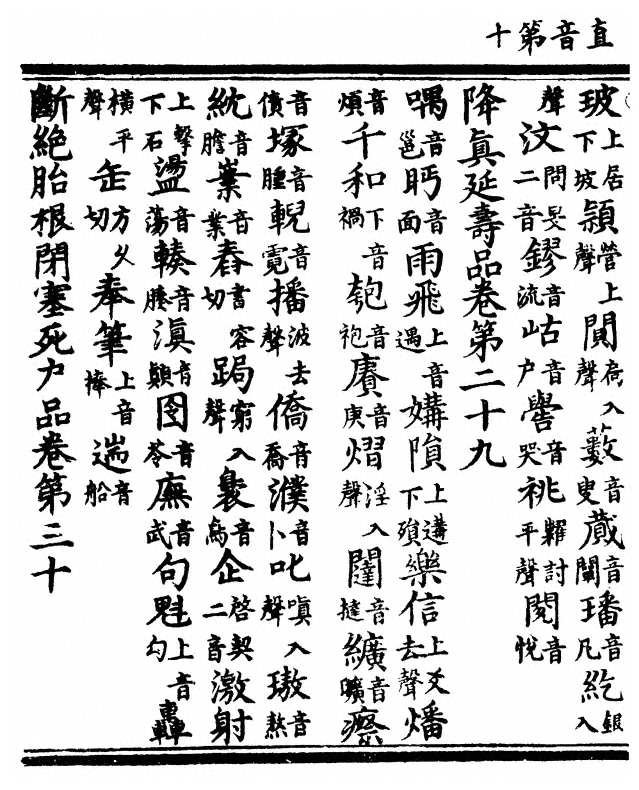 直音第十
玻上居下坡潁營上聲閴扃入聲藪音叟蕆音闡璠音凡紇銀入
聲汶問旻二音鏐音流岵音户嚳音哭祧糶討平聲閱音悅
降真延壽品卷第二十九
喁音邕眄音面雨飛上音遇媾隕上遘下殞樂信上爻去聲燔
音煩千和下音禍匏音袍賡音庚熠淫入聲闥音撻纊音曠瘵
音債塚音腫輗音霓播波去聲僑音喬濮音卜叱嗔入聲璈音熬
紞音膽嶪音業舂書容切跼窮入聲裊音鳥企啓契二音激射
上擊下石盪音蕩輳音腠滇音顛囹音苓廡音武句魁上音勾轟
橫平聲缶方久切奉筆上音捧遄音船
斷絶胎根閉塞死户品卷第三十